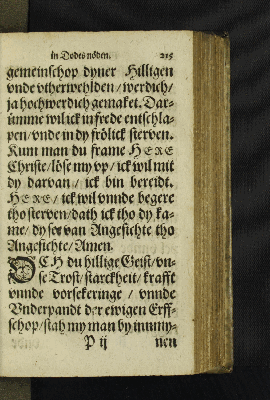 in Dodts nöden. 215
gemeinschop dyner Hilligen
vnde vtherwehlden / werdich /
ja hochwerdich gemaket. Dar-
ümme wil ick in frede entschla-
pen / vnde in dy frölick sterven.
Kum man du frame HERE
Christe / löse my vp / ick wil mit
dy darvan / ick bin bereidt.
HERE / ick wil vnnde begere
tho sterven / dath ick tho dy ka-
me / dy see van Angesichte tho
Angesichte / Amen.
OCH du hillige Geist / vn-
se Trost / starckheit / krafft
vnnde vorsekeringe / vnnde
Vnderpandt der ewigen Erff-
schop / stah my man by in myy-
P ij nen